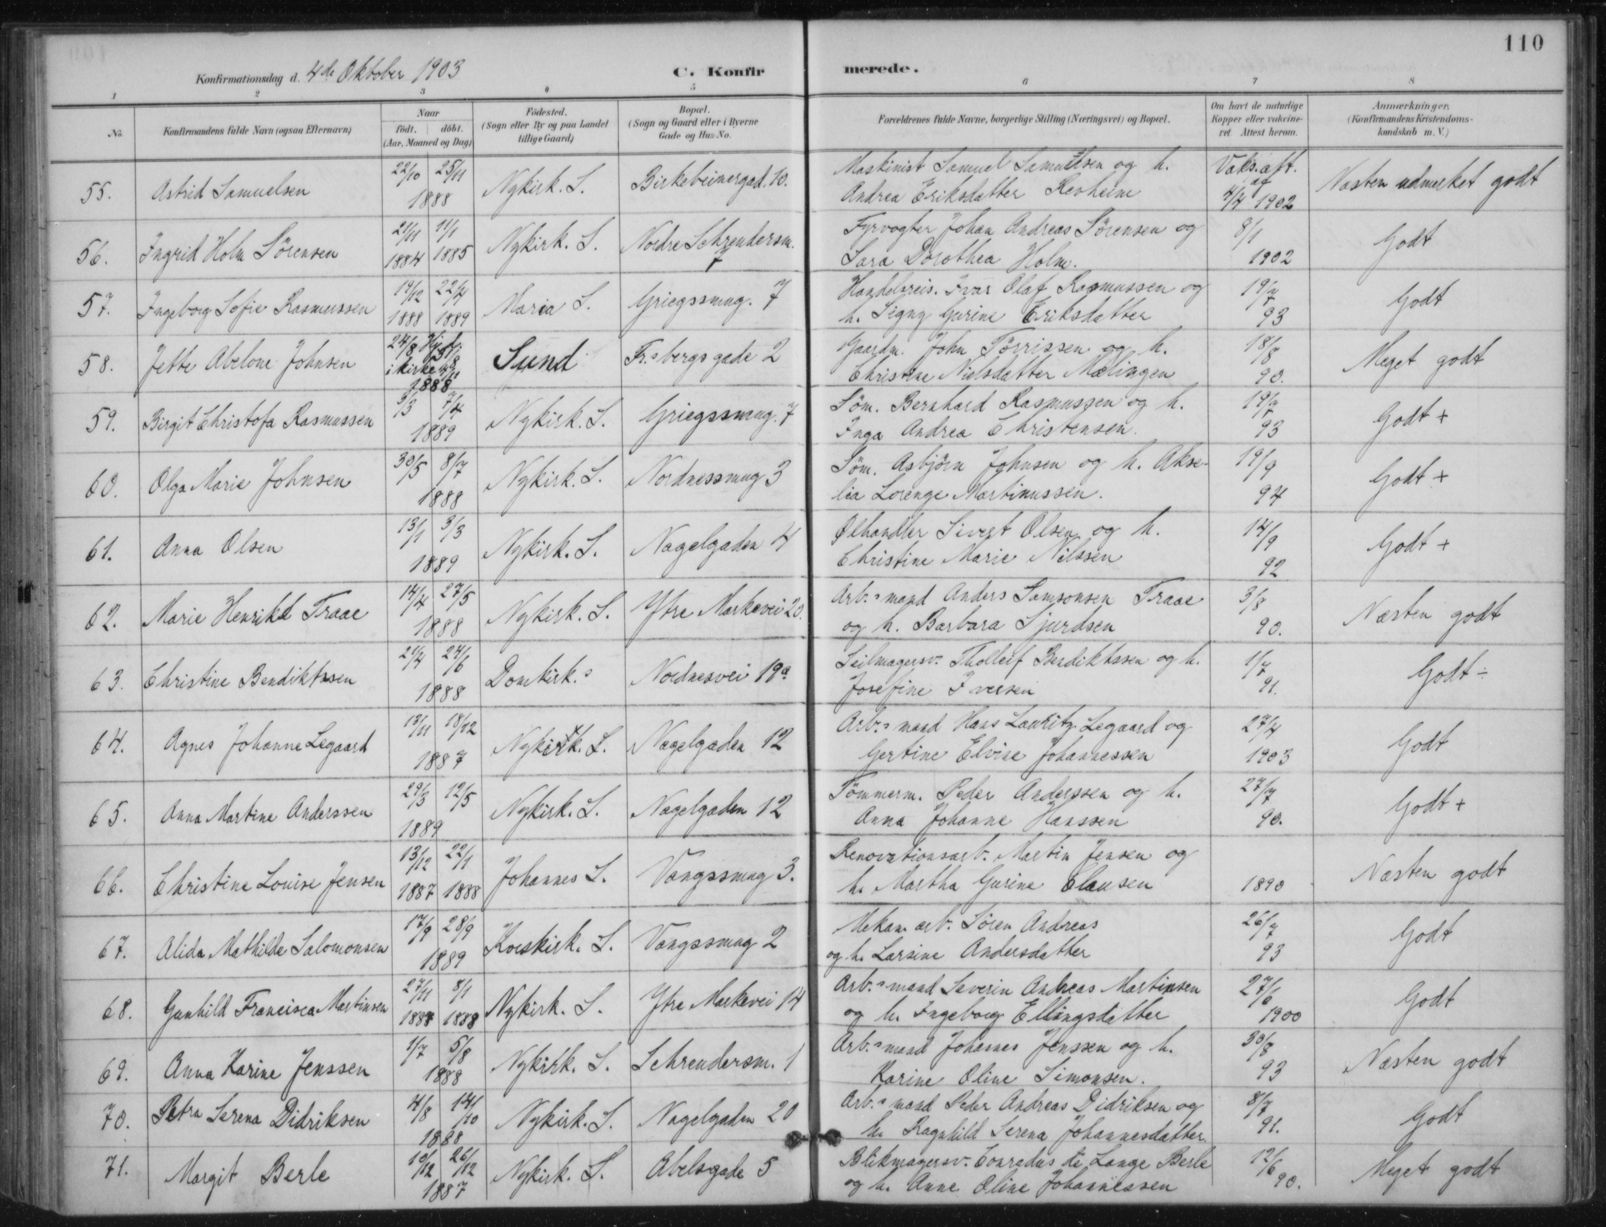 110
Konfirmationsdag d. 4de Oktober 1903
C. Konfirmerede.
1 2 3 4 5 6 7 8
No. Konfirmandens fulde Navn (ogsaa Efternavn) Naar født. døbt. (Aar, Maaned og Dag) Fødested. (Sogn eller By og paa Landet tillige Gaard) Bopæl. (Sogn og Gaard eller i Byerne Gade og Hus-No. Forældrenes fulde Navne, borgerlige Stilling (Næringsvei) og Bopæl. Om havt de naturlige Kopper eller vaccineret Attest herom. Anmærkninger. (Konfirmandens Kristendomskundskab m. V.)
55. Astrid Samuelsen 22/10 25/11 1888 Nykirk. S. Birkebeinergad. 10. Maskinist Samuel Samuelsen og h. Andrea Eriksdatter Revheim Vaks.att. af 4/4 1902 Næsten udmerket godt
56. Ingrid Holm Sørensen 21/11 1884 11/1 1885 Nykirk. S. Nordre Schrendersm. 7 Fyrvogter Johan Andreas Sørensen og Sara Dorothea Holm. 8/1 1902 Godt
57. Ingeborg Sofie Rasmussen 14/12 1888 22/4 1889 Maria S. Griegssmug. 7 Handelsreis. Ivar Olaf Rasmussen og h. Signy Gurine Eriksdatter 19/7 93 Godt
58. Jette Abelone Johnsen 24/8 i kirke 1888 Sund Fr.sbergsgade 2 Gaardm. John Tørrissen og h. Christine Nielsdatter Mælingen 18/8 90. Meget godt
59. Birgit Christofa Rasmussen 3/3 7/4 1889 Nykirk. S. Griegssmug. 7 Søm. Bernhard Rasmussen og h. Inga Andrea Christensen. 19/7 93 Godt +
60. Olga Marie Johnsen 30/5 8/7 1888 Nykirk. S. Nordnessmug 3 Søm. Asbjørn Johnsen og h. Akselia Lorenge Martinussen. 19/9 94 Godt +
61. Anna Olsen 13/1 3/3 1889 Nykirk. S. Nagelgaden 4 Ølhandler Sivert Olsen og h. Christine Marie Nilssen 14/9 92 Godt +
62. Marie Henrikd Traae 14/4 27/5 1888 Nykirk. S. Ytre Markevei 20. Arb.smand Anders Samsonsen Traae og h. Barbara Sjurdsen 3/8 90. Næsten godt
63. Christine Bendiktssen 21/4 24/6 1888 Domkirk.s Nordnesvei 19a Seilmagersv. Tholleif Bendiktssen og h. Josefine Iversen 1/7 91. Godt ÷
64. Agnes Johanne Legaard 13/11 18/12 1887 Nykirk. S. Nagelgaden 12 Arb.smand Hans Lauritz Legaard og Gertine Elvise Johannessen 27/4 1903 Godt
65. Anna Martine Anderssen 29/3 12/5 1889 Nykirk. S. Nagelgaden 12 Tømmerm. Peder Anderssen og h. Anna Johanne Hanssen 27/7 90. Godt +
66. Christine Louise Jensen 13/12 1887 22/1 1888 Johannes S. Vangssmug 3. Renovationsarb. Martin Jensen og h. Martha Gurine Clausen 1890 Næsten godt
67. Alida Mathilde Salomonsen 17/9 28/9 1889 Korskirk. S. Vangssmug 2 Mekan. arb. Søren Andreas og h. Larsine Andersdatter 26/7 93 Godt
68. Gunhild Francisca Martinsen 27/11 1887 8/1 1888 Nykirk. S. Ytre Markevei 14 Arb.smand Severin Andreas Martinsen og h. Ingeborg Ellingsdatter 27/6 1900 Godt
69. Anna Karine Jenssen 1/7 5/8 1888 Nykirk. S. Schrendersm. 1 Arb.smand Johannes Jenssen og h. Karine Oline Simonsen. 30/8 93 Næsten godt
70. Petra Serena Didriksen 4/8 14/10 1888 Nykirk. S. Nagelgaden 20 Arb.smand Peder Andreas Didriksen og h. Ragnhild Serena Johannesdatter 8/7 91. Godt
71. Margit Berle 10/12 26/12 1887 Nykirk. S. Abelsgade 5 Blikmagersv. Conradus de Lange Berle og h. Anne Oline Johannessen 12/6 90. Meget godt